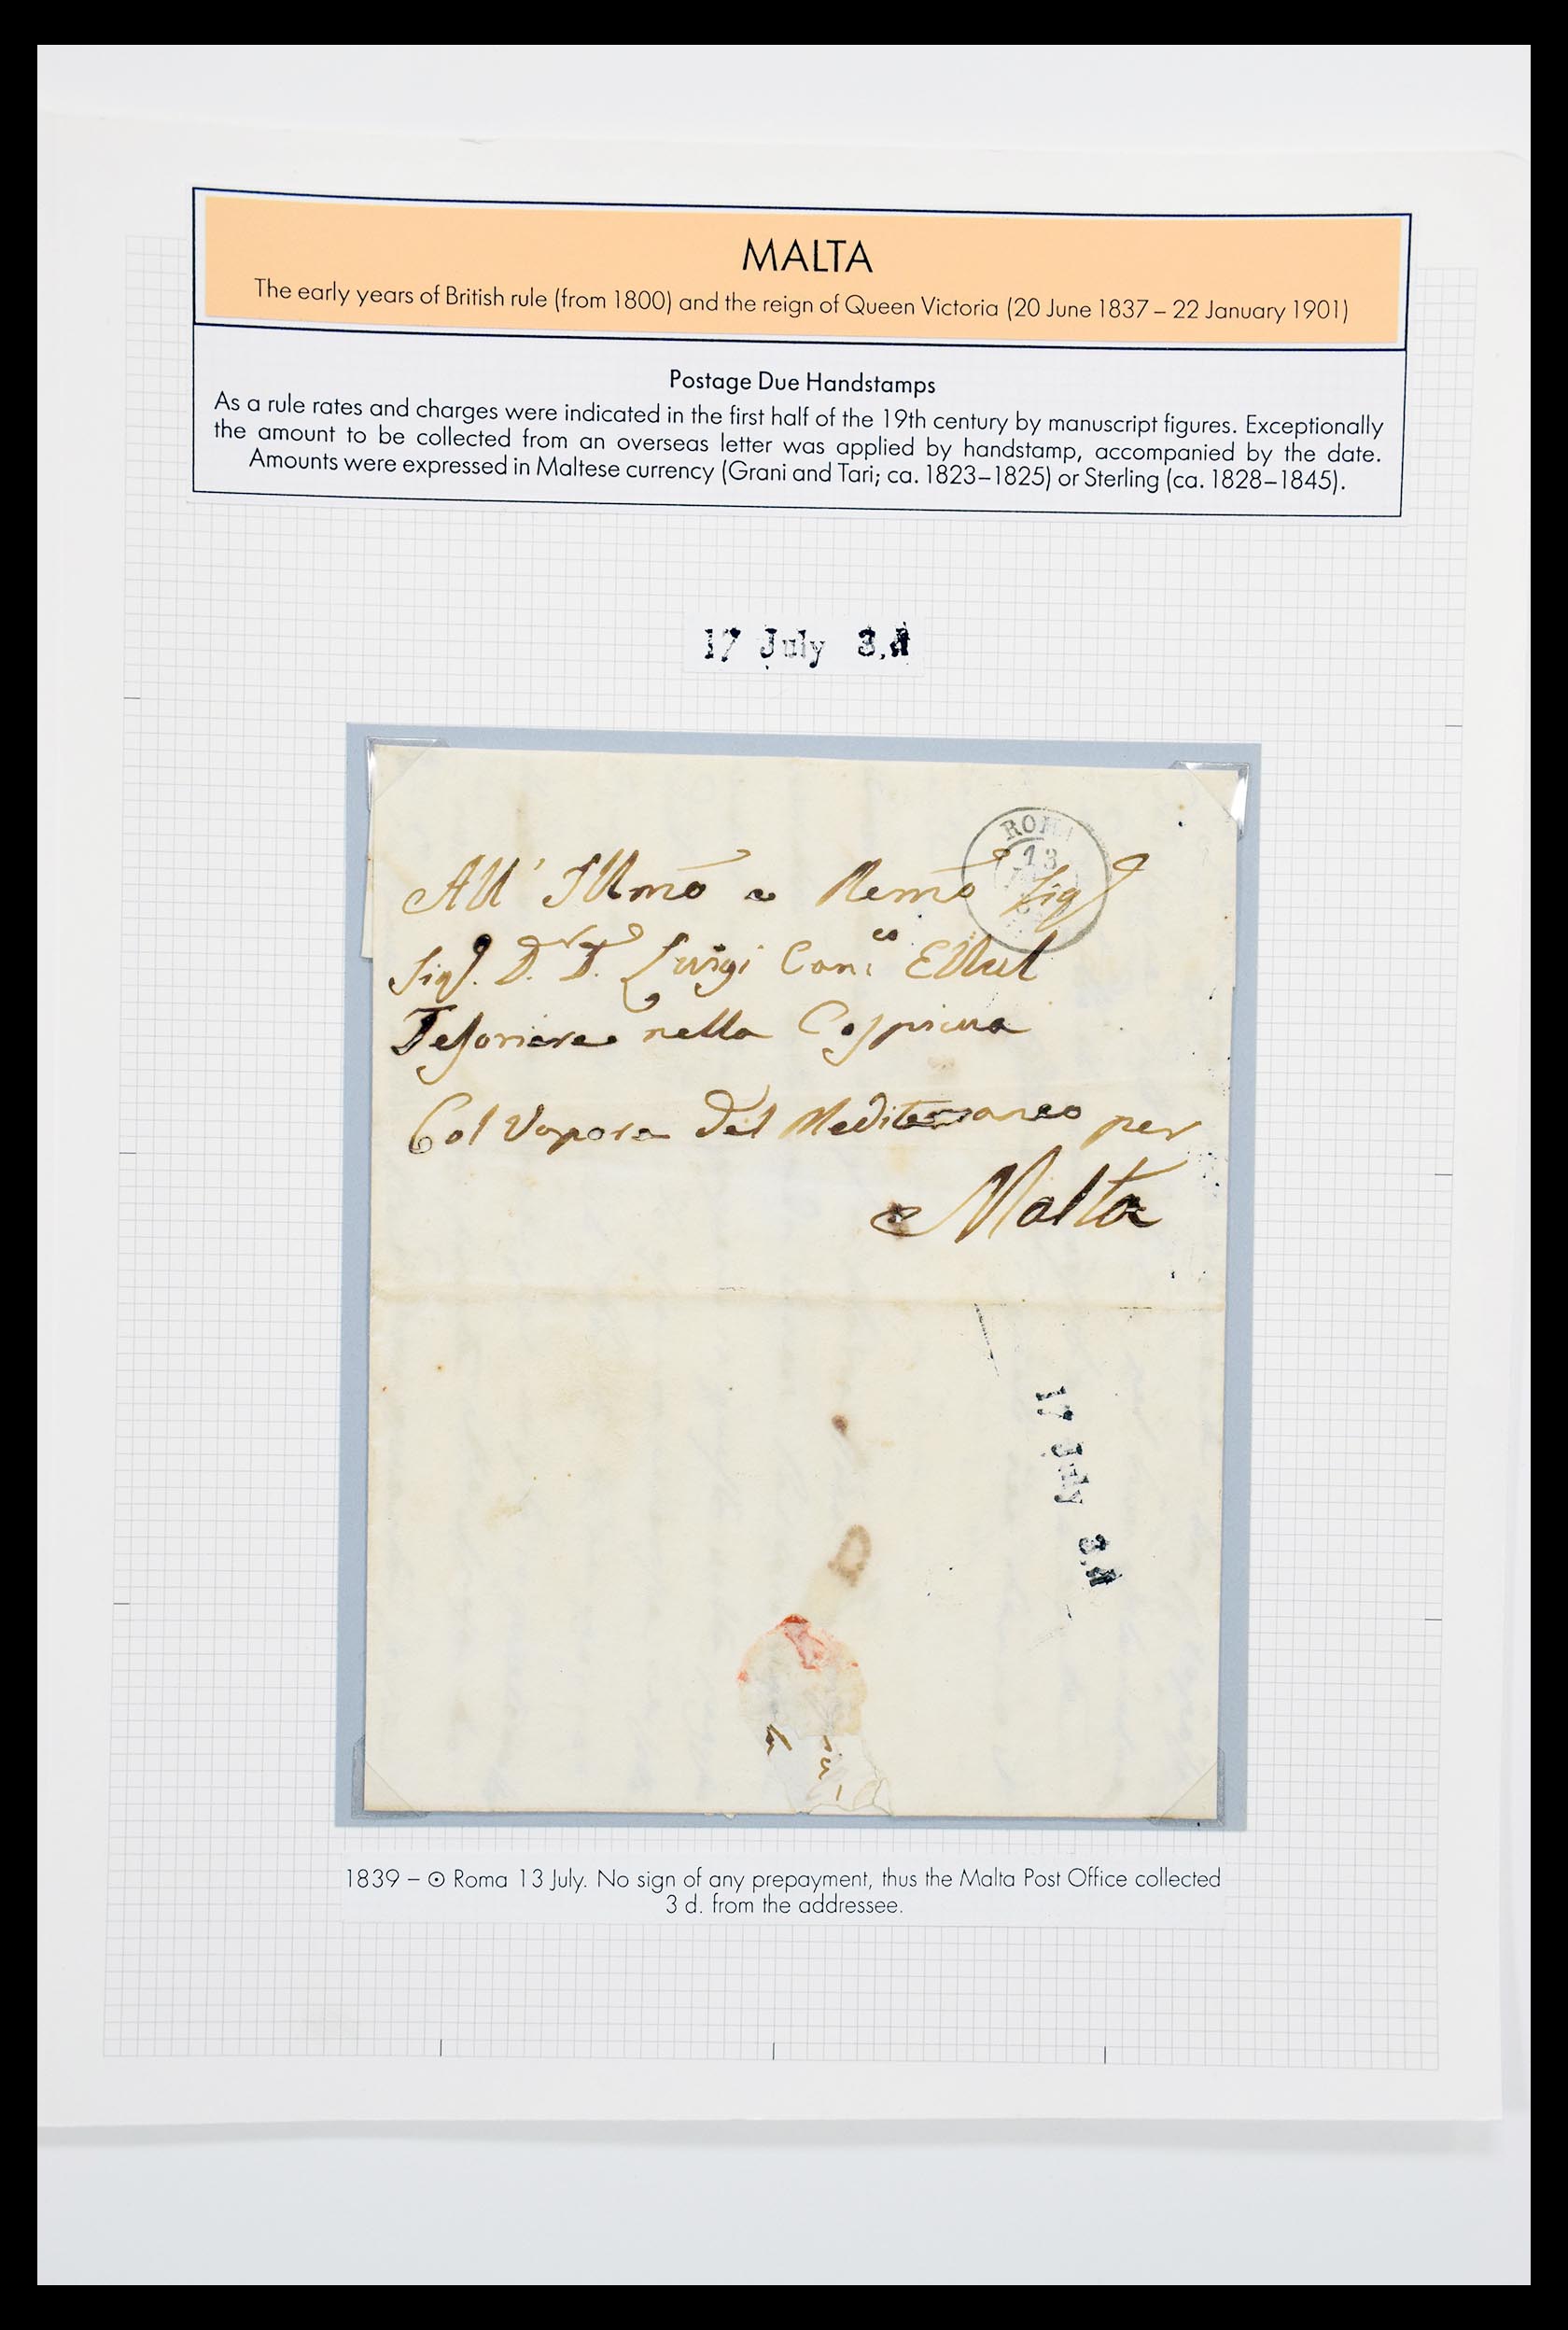 MALTA
The early years of British rule (from 1800) and the reign of Queen Victoria (20 June 1837 – 22 January 1901)
Postage Due Handstamps
As a rule rates and charges were indicated in the first half of the 19th century by manuscript figures. Exceptionally
the amount to be collected from an overseas letter was applied by handstamp, accompanied by the date.
Amounts were expressed in Maltese currency (Grani and Tari; ca. 1823–1825) or Sterling (ca. 1828–1845).
17 July 3.d
ROMA
13
All' Illmo e Remo Sigr
Sigr. D. D. Luigi Canco Ellul
Tesoriere nella Cospicua
Col Vapore del Mediterraneo per
Malta
17 July 3.d
1839 – ⊙ Roma 13 July. No sign of any prepayment, thus the Malta Post Office collected
3 d. from the addressee.